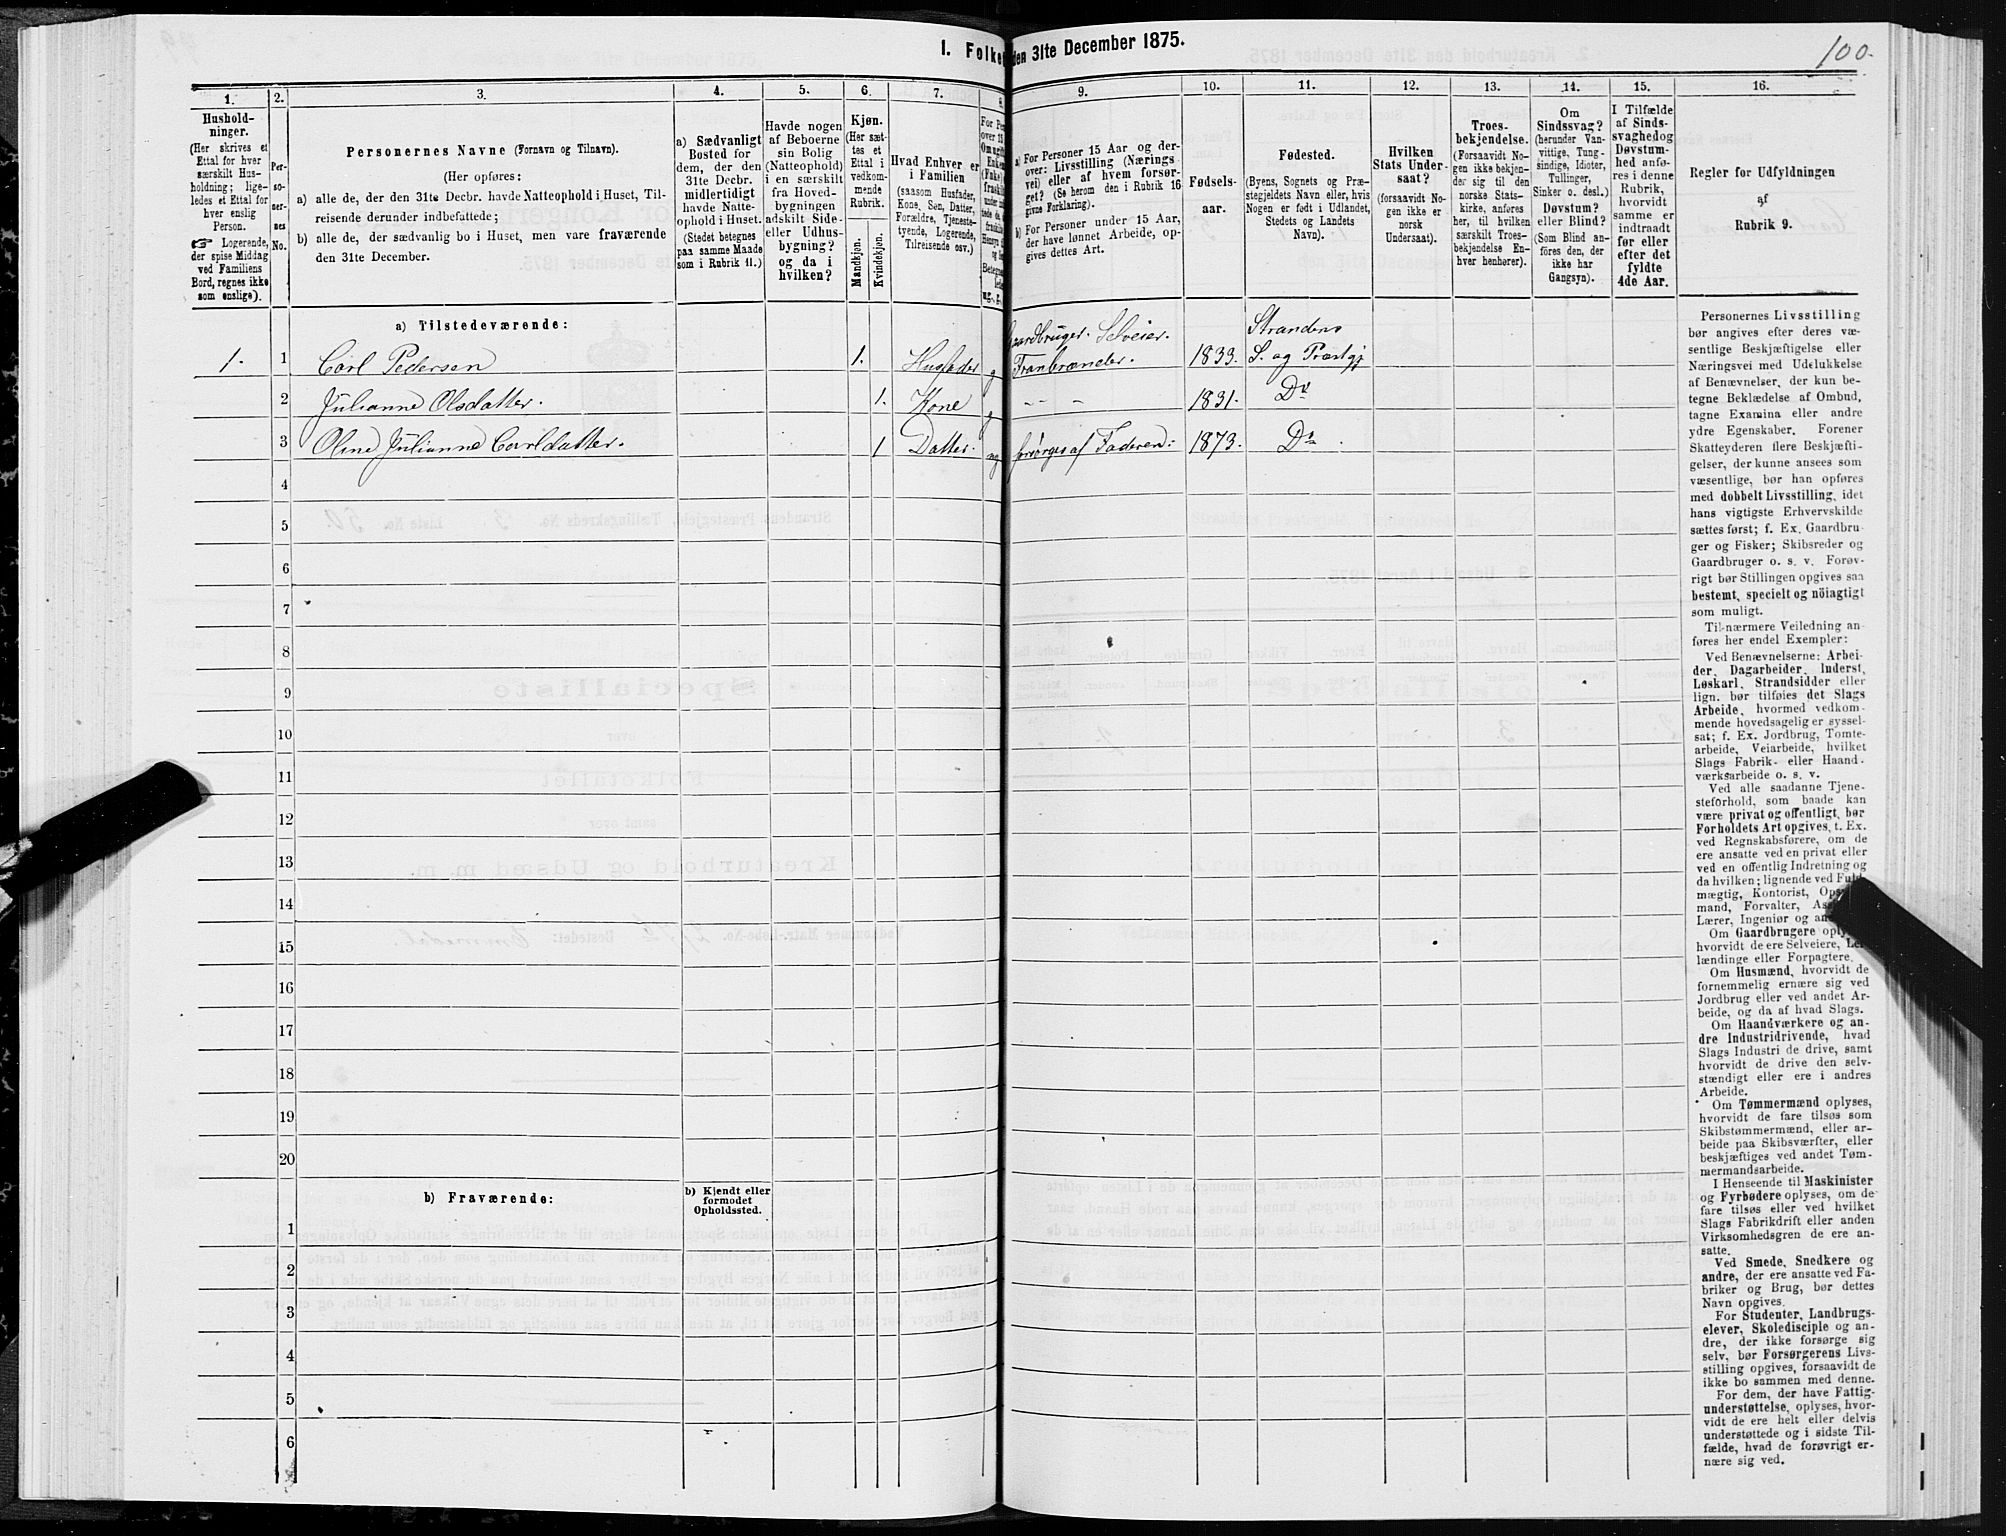 I. Folke den 31te December 1875.
100.
1.
Hushold-
ninger.
(Her skrives et
Ettal for hver
særskilt Hus-
holdning; lige-
ledes et Ettal for
hver enslig
Person.
☞ Logerende,
der spise Middag
ved Familiens
Bord, regnes ikke
som enslige).
2.
Per-
so-
ner-
nes
No.
3.
Personernes Navne (Fornavn og Tilnavn).
(Her opføres:
a) alle de, der den 31te Decbr. havde Natteophold i Huset, Til-
reisende derunder indbefattede;
b) alle de, der sædvanlig bo i Huset, men vare fraværende
den 31te December.
4.
a) Sædvanligt
Bosted for
dem, der den
31te Decbr.
midlertidigt
havde Natte-
ophold i Huset.
(Stedet betegnes
paa samme Maade
som i Rubrik 11.)
5.
Havde nogen
af Beboerne
sin Bolig
(Natteophold)
i en særskilt
fra Hoved-
bygningen
adskilt Side-
eller Udhus-
bygning?
og da i
hvilken?
6.
Kjøn.
(Her sæt-
tes et
Ettal i
vedkom-
mende
Rubrik.
Mandkjøn.
Kvindekjøn.
7.
Hvad Enhver er
i Familien
(saasom Husfader,
Kone, Søn, Datter,
Forældre, Tjeneste-
tyende, Logerende,
Tilreisende osv.)
8.
9.
a) For Personer 15 Aar og der-
over: Livsstilling (Nærings
vei) eller af hvem forsør-
get? (Se herom den i Rubrik 16
givne Forklaring).
b) For Personer under 15 Aar,
der have lønnet Arbeide, op-
gives dettes Art.
10.
Fødsels-
aar.
11.
Fødested.
(Byens, Sognets og Præ-
stegjeldets Navn eller, hvis
Nogen er født i Udlandet,
Stedets og Landets
Navn).
12.
Hvilken
Stats Under-
saat?
(forsaavidt No-
gen ikke er
norsk
Undersaat).
13.
Troes-
bekjendelse.
(Forsaavidt No-
gen ikke bekjen-
der sig til den
norske Stats-
kirke, anføres
her, til hvilken
særskilt Troes-
bekjendelse En-
hver henhører).
14.
Om
Sindssvag?
(herunder Van-
vittige, Tung-
sindige, Idioter,
Tullinger,
Sinker o. desl.)
Døvstum?
eller Blind?
(Som Blind an-
føres den, der
ikke har
Gangsyn).
15.
I Tilfælde
af Sinds-
svaghedog
Døvstum-
hed anfø-
res i denne
Rubrik,
hvorvidt
samme er
indtraadt
før eller
efter det
fyldte
4de Aar.
16.
Regler for Udfyldningen
af
Rubrik 9.
a) Tilstedeværende:
1. 1 Carl Pedersen 1. Husfader g Gaardbruger. Selveier. Tranbrænder. 1833. Strandens S. og Præstgj
2 Julianne Olsdatter. 1. Kone g -- - 1831. Do
3 Oline Julianne Carldatter. 1 Datter. ug forsørges af Faderen: 1873. Do
4
5
6
7
8
9
10
11
12
13
14
15
16
17
18
19
20
b) Fraværende:
b) Kjendt eller
formodet
Opholdssted.
1
2
3
4
5
6
Personernes Livsstilling
bør angives efter deres væ-
sentlige Beskjæftigelse eller
Næringsvei med Udelukkelse
af Benævnelser, der kun be-
tegne Beklædelse af Ombud,
tagne Examina eller andre
ydre Egenskaber. Forener
Skatteyderen flere Beskjæfti-
gelser, der kunne ansees som
væsentlige, bør han opføres
med dobbelt Livsstilling, idet
hans vigtigste Erhvervskilde
sættes først; f. Ex. Gaardbru-
ger og Fisker; Skibsreder og
Gaardbruger o. s. v. Forøv-
rigt bør Stillingen opgives saa
bestemt, specielt og nöiagtigt
som muligt.
Til nærmere Veiledning an-
føres her endel Exempler:
Ved Benævnelserne: Arbei-
der, Dagarbeider, Inderst,
Løskarl, Strandsidder eller
lign. bør tilføies det Slags
Arbeide, hvormed vedkom-
mende hovedsagelig er syssel-
sat; f. Ex. Jordbrug, Tomte-
arbeide, Veiarbeide, hvilket
Slags Fabrik- eller Haand-
værksarbeide o. s. v.
Ved alle saadanne Tjene-
steforhold, som baade kan
være privat og offentligt, bør
Forholdets Art opgives, t. Ex.
ved Regnskabsførere, om de
ere ansatte ved en privat eller
ved en offentlig Indretning og
da hvilken; lignende ved Fuld-
mægtig, Kontorist,
mand, Forvalter,
Lærer, Ingeniør og
Om Gaardbrugere
hvorvidt de ere Selveiere,
lændinge eller Forpagtere.
Om Husmænd, hvorvidt de
fornemmelig ernære sig ved
Jordbrug eller ved andet Ar-
beide, og da af hvad Slags.
Om Haandværkere og an-
dre Industridrivende, hvad
Slags Industri de drive, samt
hvorvidt de drive den selv-
stændigt eller ere i andres
Arbeide.
Om Tømmermænd oplyses,
hvorvidt de fare tilsøs som
Skibstømmermænd, eller ar-
beide paa Skibsværfter, eller
beskjæftiges ved andet Tøm-
mermandsarbeide.
I Henseende til Maskinister
og Fyrbødere oplyses, om de
fare tilsøs eller ved hvilket
Slags Fabrikdrift eller anden
Virksomhedsgren de ere an-
satte.
Ved Smede, Snedkere og
andre, der ere ansatte ved Fa-
briker og Brug, bør dettes
Navn opgives.
For Studenter, Landbrugs-
elever, Skoledisciple og an-
dre, der ikke forsørge sig
selv, bør Forsørgerens Livs-
stilling opgives, forsaavidt de
ikke bo sammen med denne.
For dem, der have Fattig-
understøttelse, oplyses, hvor-
vidt de ere helt eller delvis
understøttede og i sidste Til-
fælde, hvad de forøvrigt er-
nære sig ved.